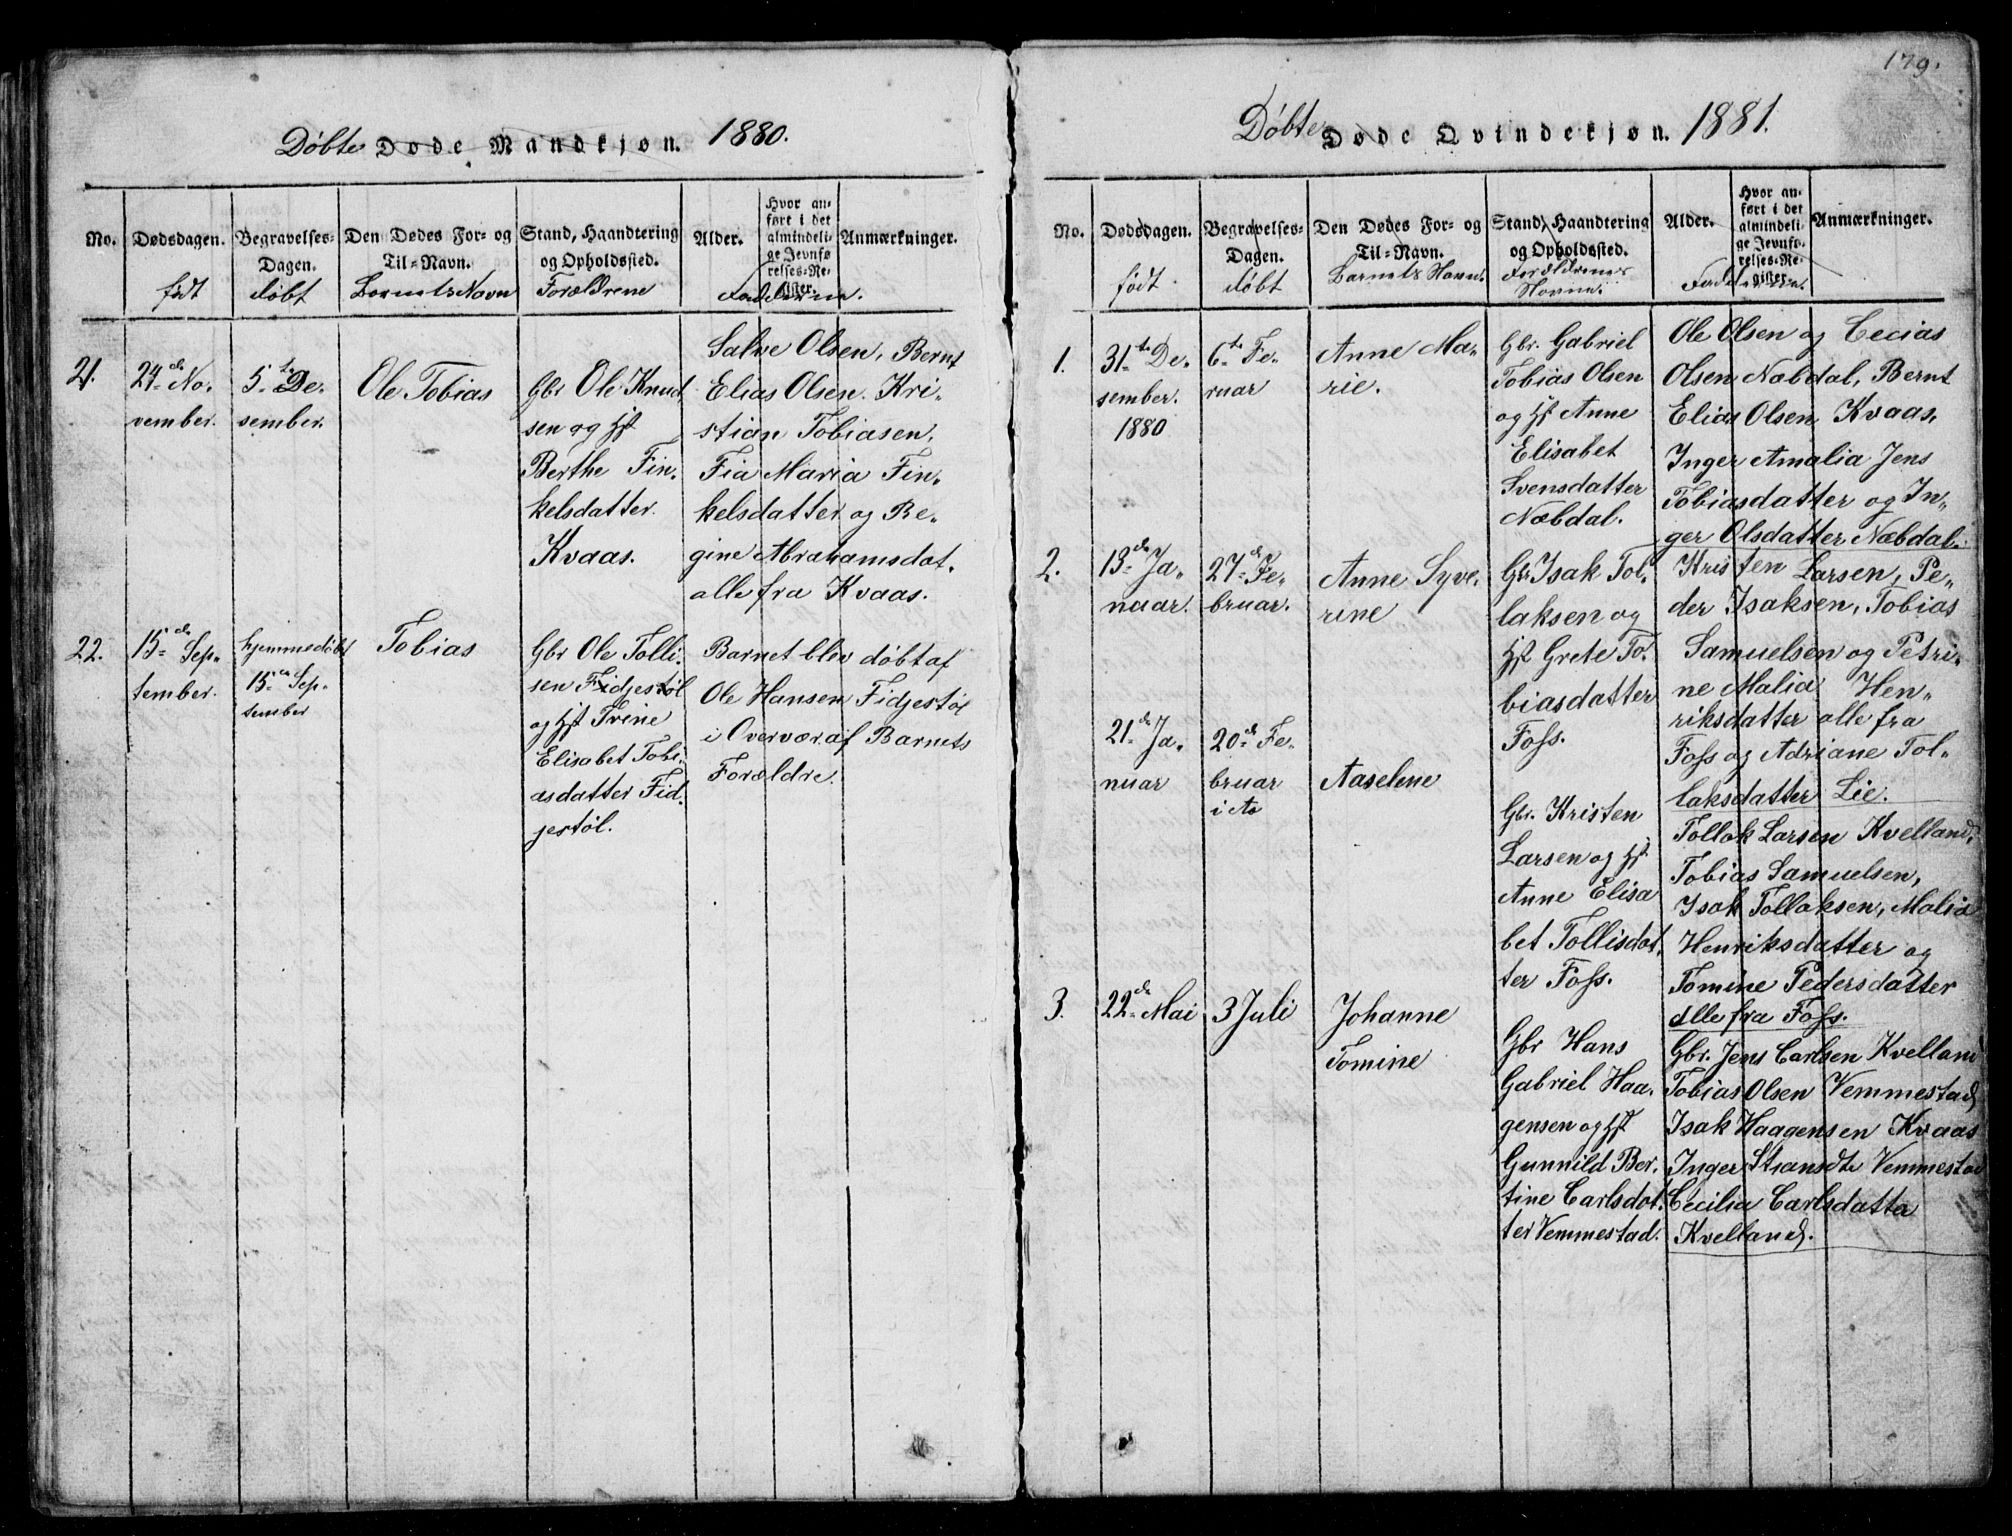 Døbte Døde Mandkjøn. 1880.
No.
Dødsdagen.
født
Begravelses-
Dagen.
døbt
Den Dødes For- og
Til-Navn.
Barnets Navn
Stand, Haandtering
og Opholdssted.
Forældrene
Alder.
Hvor an-
ført i det
almindeli-
ge Jevnfø
relses-Re-
gister.
Fadderne.
Anmærkninger.
21.
24de No-
vember.
5te De-
sember.
Ole Tobias
Gbr Ole Knud
sen og Hst
Berthe Fin-
kelsdatter.
Kvaas.
Salve Olsen, Bernt
Elias Olsen. Kri-
stian Tobiasen,
Fia Maria Fin-
kelsdatter og Re-
gine Abrahamsdat.
alle fra Kvaas.
22.
15de Sep-
tember.
hjemmedøbt
15de Sep-
tember
Tobias
Gbr Ole Tolli-
sen Fidjestøl
og Hst Trine
Elisabet Tobi-
asdatter Fid-
jestøl.
Barnet blev døbt af
Ole Hansen Fidjestøl
i Overvær af Barnets
Forældre.
179.
Døbte Døde Qvindekjøn. 1881.
No.
Dødsdagen.
født
Begravelses-
Dagen.
døbt
Den Dødes For- og
Til-Navn.
Barnets Navn.
Stand, Haandtering
og Opholdssted.
Forældrenes
Navne.
Alder.
Hvor an-
ført i det
almindeli-
ge Jevnfø-
relses-Re-
gister.
Fadderne.
Anmærkninger.
1.
31te De-
sember.
1880
6te Fe-
ruar
Anne Ma-
rie.
Gbr. Gabriel
Tobias Olsen
og Hst Anne
Elisabet
Svensdatter
Næbdal.
Ole Olsen og Cecias
Olsen Næbdal, Bernt
Elias Olsen, Kvaas,
Inger Amalia Jens
Tobiasdatter og In-
ger Olsdatter Næbdal.
2.
13de Ja-
nuar.
27de Fe-
bruar.
Anne Syve-
rine
Gbr Isak Tol-
laksen og
Hst Grete To-
biasdatter
Foss.
Kristen Larsen, Pe-
der Isaksen, Tobias
Samuelsen og Petri-
ne Malia Hen-
riksdatter alle fra
Foss og Adriane Tol-
laksdatter Lie.
21de Ja-
nuar
20de Fe-
bruar
i Aa
Aaselene
Gbr. Kristen
Larsen og Hst
Anne Elisa
bet Tollisdat-
ter Foss.
Tollak Larsen Kvelland,
Tobias Samuelsen,
Isak Tollaksen, Malia
Henriksdatter og
Tomine Pedersdatter
alle fra Foss.
3.
22de Mai
3 Juli
Johanne
Tomine
Gbr Hans
Gabriel Haa-
gensen og Hst
Gunnild Ber-
tine Carlsdat-
ter Vemmestad.
Gbr. Jens Carlsen Kvelland
Tobias Olsen Vemmestad,
Isak Haagensen Kvaas
Inger Vemmestad
Cecilia Carlsdatter
Kvelland.